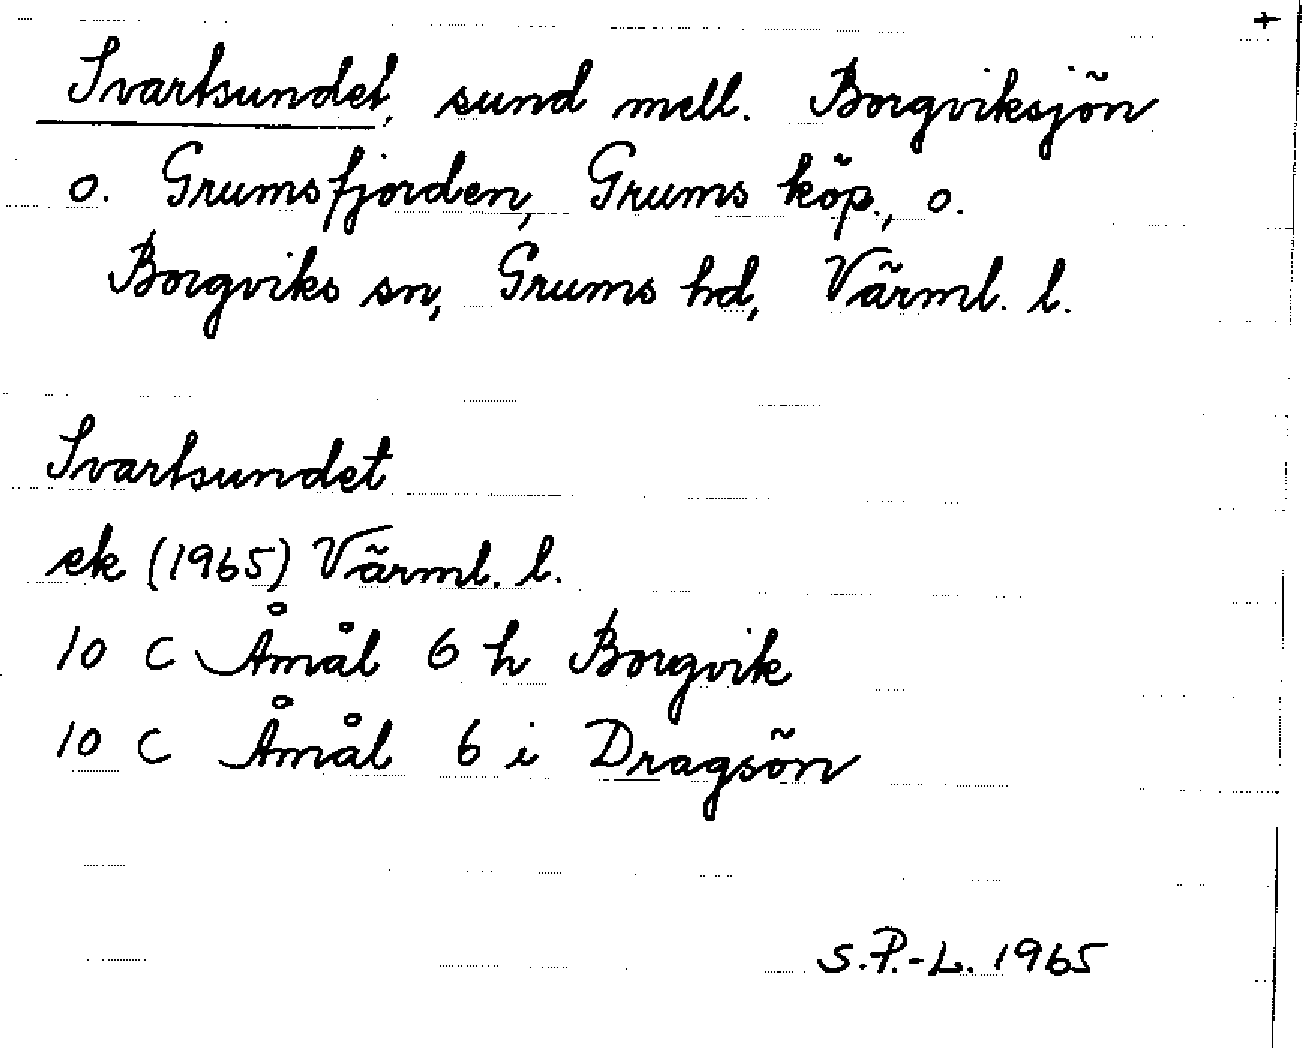 +
Svartsundet, sund mell. Borgviksjön
o. Grumsfjorden, Grums köp., o.
Borgviks sn, Grums hd, Värml. l.
Svartsundet
ek (1965) Värml. l.
10 C Åmål 6 h Borgvik
10 C Åmål 6 i Dragsön
S.P.-L. 1965